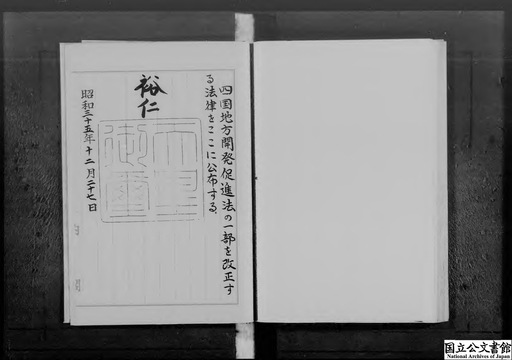 四国地方開発促進法の一部を改正す
る法律をここに公布する。
裕仁
天皇御璽
昭和三十五年十二月二十七日
国立公文書館
National Archives of Japan